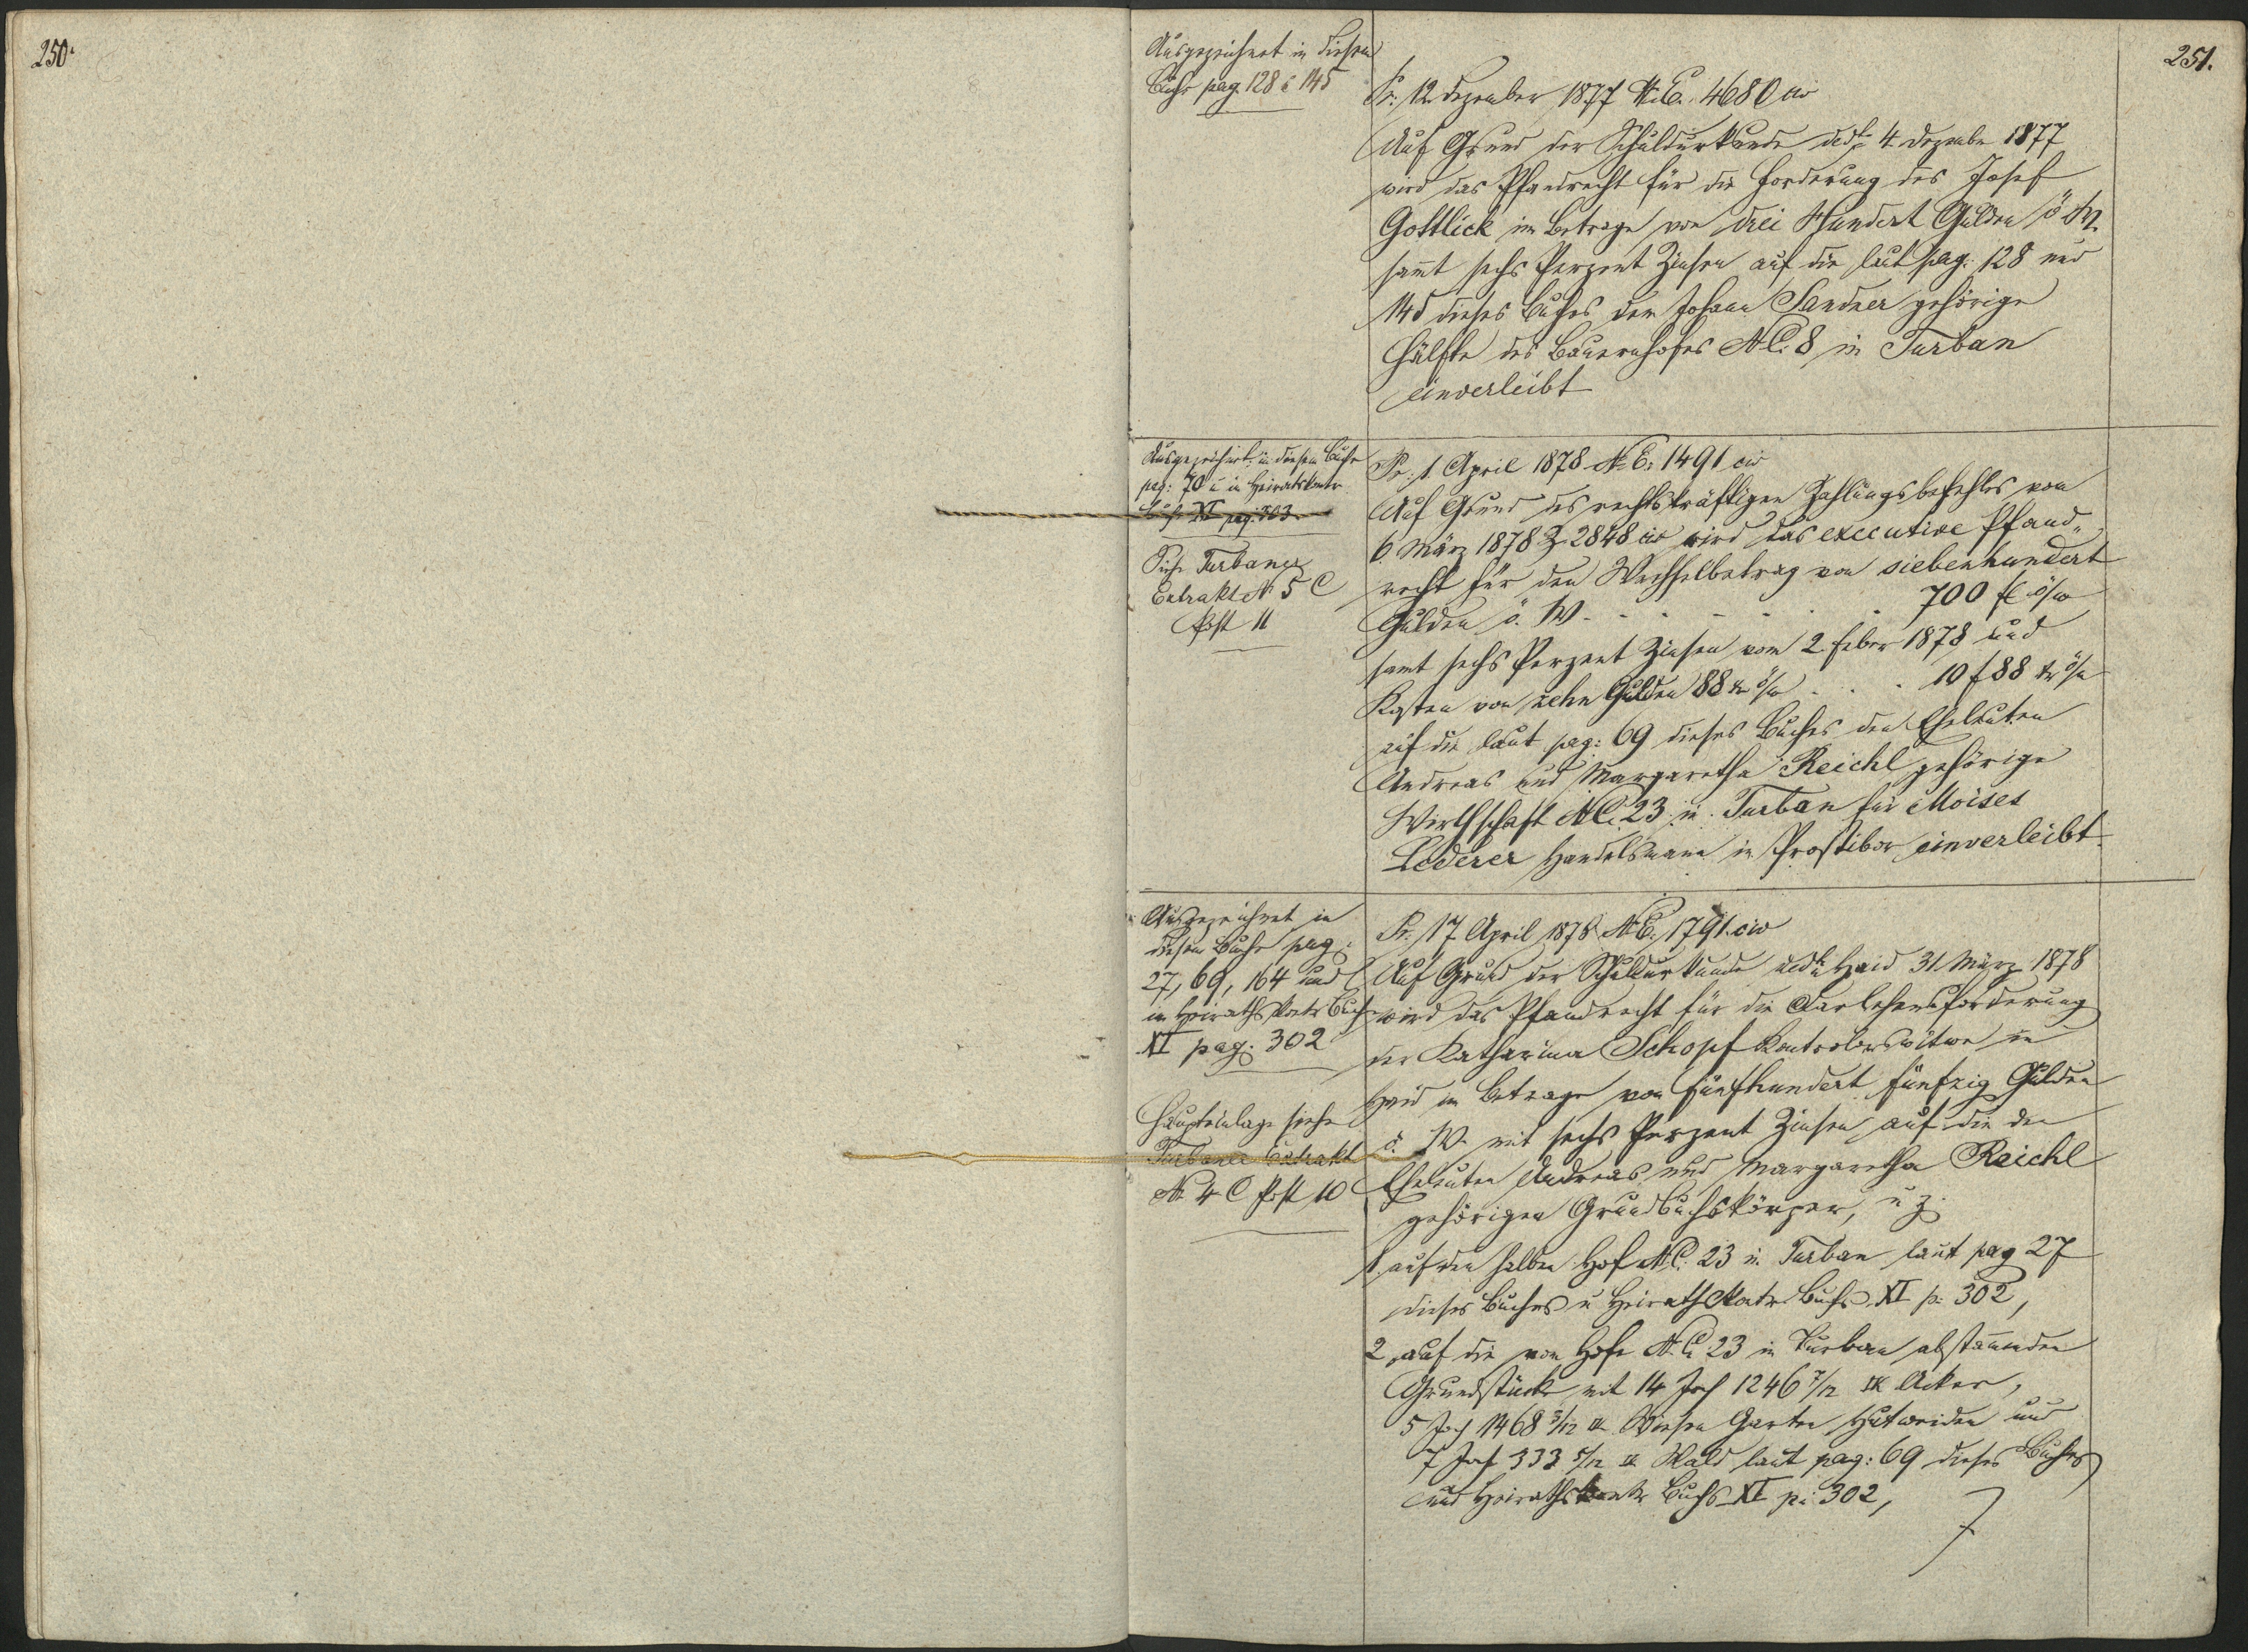 250.
251.
Ausgezeichnet in diesem
Buche pag. 128 & 145
Pr: 12. Dezember 1877 N.E. 4680 civ
Auf Grund der Schuldurkunde ddto 4 Dezember 1877
wird das Pfandrecht für die Forderung des Josef
Gottlick im Betrage von drei Hundert Gulden ö. W.
sammt sechs Perzent Zinsen auf die laut pag: 128 und
145 dieses Buches dem Johann Sandner gehörige
Hälfte des Bauernhofes N.C. 8 in Turban
einverleibt
Ausgezeichnet in diesem Buche
pag: 70 u in Heiratskontr
Buch XI pag: 303
Siehe Turbaner
Extrakt N 5 C
Post 11
Pr: 1 April 1878 N.E. 1491 civ
Auf Grund des rechtskräftigen Zahlungsbefehles vom
6. März 1878 Z 2848 civ wird das executive Pfand-
recht für den Wechselbetrag von siebenhundert
Gulden ö. W. - - - - - - 700 fl ö/w
samt sechs Perzent Zinsen vom 2. Feber 1878 und
Kosten von zehn Gulden 88 kr ö/w . . . 10 f 88 kr ö/w
auf die laut pag: 69 dieses Buches den Eheleuten
Andreas und Margaretha Reichl gehörige
Wirthschaft N.C. 23 in Turban für Moises
Lederer Handelsmann in Prostibor einverleibt.
Ausgezeichnet in
diesem Buche pag:
27, 69, 164 und
im Heirathskontr Buche
XI pag. 302
Haupteinlage siehe
Turbaner Extrakt
N 4 C Post 10
Pr: 17 April 1878 N.E. 1791 civ
Auf Grund der Schuldurkunde ddto Haid 31 März 1878
wird das Pfandrecht für die Darlehensforderung
der Katharina Schopf Kontrolorswitwe in
Haid im Betrage von fünfhundert fünfzig Gulden
ö. W. mit sechs Perzent Zinsen auf die den
Eheleuten Andreas und Margaretha Reichl
gehörigen Grundbuchskörper, u z.
1. auf den halben Hof N.C. 23 in Turban laut pag 27
dieses Buches u Heirathskontr. Buchs XI p. 302,
2. auf die vom Hofe N.C. 23 in Turban abstammenden
Grundstücke mit 14 Joch 1246 7/12 Acker,
5 Joch 1468 3/12 Wiesen Garten Hutweiden und
7 Joch 333 5/12 Wald laut pag: 69 dieses Buches
und Heirathskontr Buchs XI p: 302,